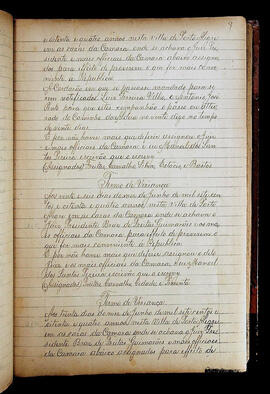 9
e setenta e quatro annos nesta Villa de Porto Alegre
em as cazas da Camara onde se achava o Juiz Pre-
sidente e mais officiaes da Camara abaixo assigna-
dos para effeito de proverem o que for mais conve-
niente a Republica
E acordarão em que se passasse mandado para se-
rem notificados Luis
para que
de
de vinte dias
E por não haver mais que deferir assignou o Juiz
e mais officiaes da Camara e eu Manoel dos San-
tos Pereira escrivão que o escrevy
(assignados) Freitas Carvalho
Termo de Vereança
Aos vinte e seis dias do mez de Junho de mil setecen-
tos e setenta e quatro annos, nesta Villa de Porto
Alegre em as cazas da Camara onde se achavam o
Juiz Presidente Braz de Freitas Guimarães e os ma-
is officiaes da Camara para effeito de proverem o
que for mais conveniente a Republica
E por não haver mais que deferir assignou o dito
Juiz e os mais officiaes da Camara, e eu Manoel
dos Santos Pereira escrivão que o escrevy
(assignados) Freitas, Carvalho, Cidade e
Termo de Vereança
Aos trinta dias do mez de Junho de mil setecentos e
setenta e quatro annos, nesta Villa de Porto Alegre
em as cazas da Camara onde se achava o Juiz Pre-
sidente Braz de Freitas Guimarães e mais officiaes
da Camara abaixo assignados para effeito de